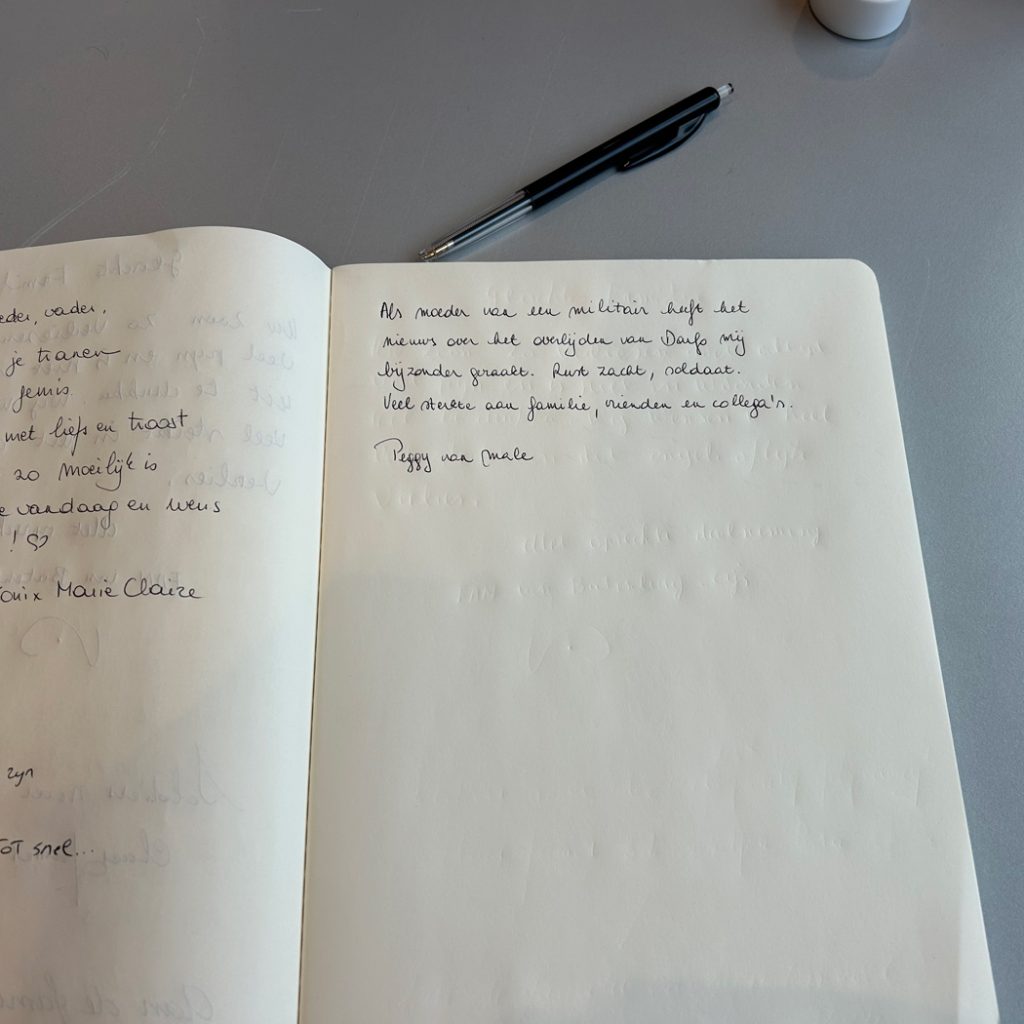 eder, vader,
je tranen
gemis.
met liefs en troost
zo moeilijk is
e vandaag en wens
! ♡
onix Marie Claire
zyn
TOT snel...
Als moeder van een militair heeft het
nieuws over het overlijden van mij
bijzonder geraakt. Rust zacht, soldaat.
Veel sterkte aan familie, vrienden en collega's.
Peggy van Male